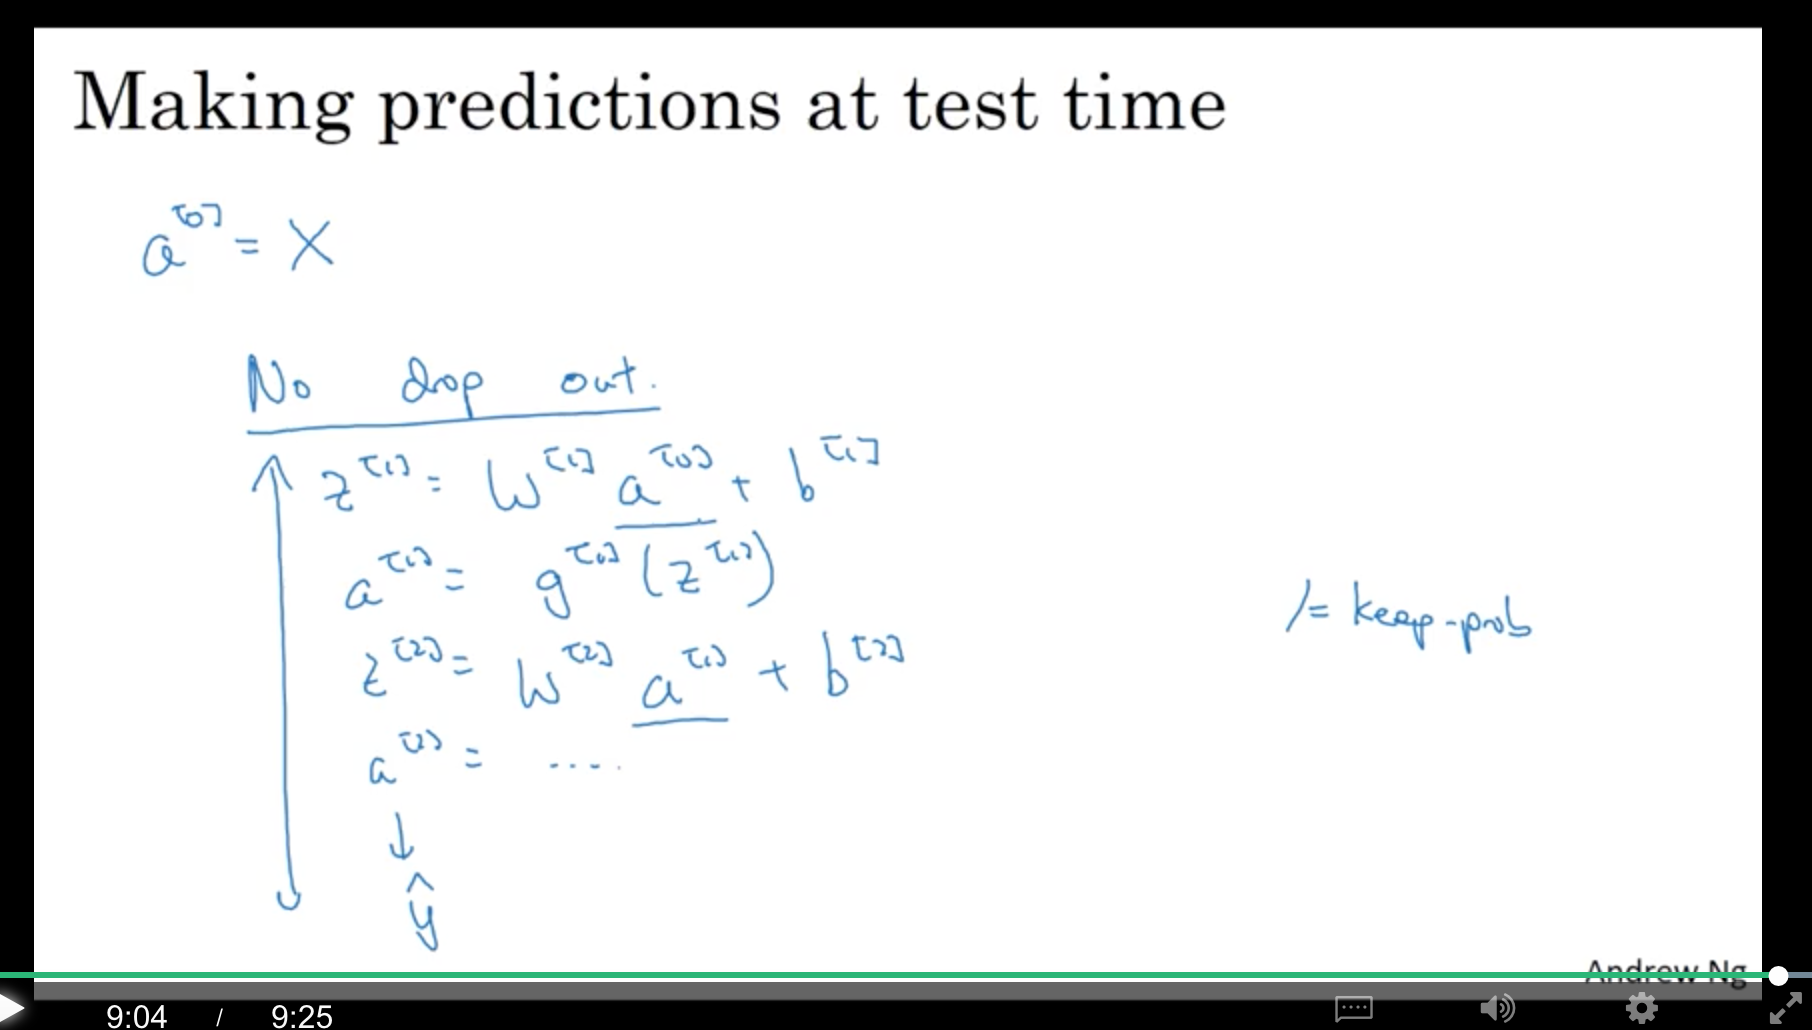 Making predictions at test time
a^[0] = X
No drop out.
z^[1] = W^[1] a^[0] + b^[1]
a^[1] = g^[1] (z^[1])
z^[2] = W^[2] a^[1] + b^[2]
a^[2] = ....
↓
ŷ
/= keep-prob
Andrew Ng
9:04 / 9:25